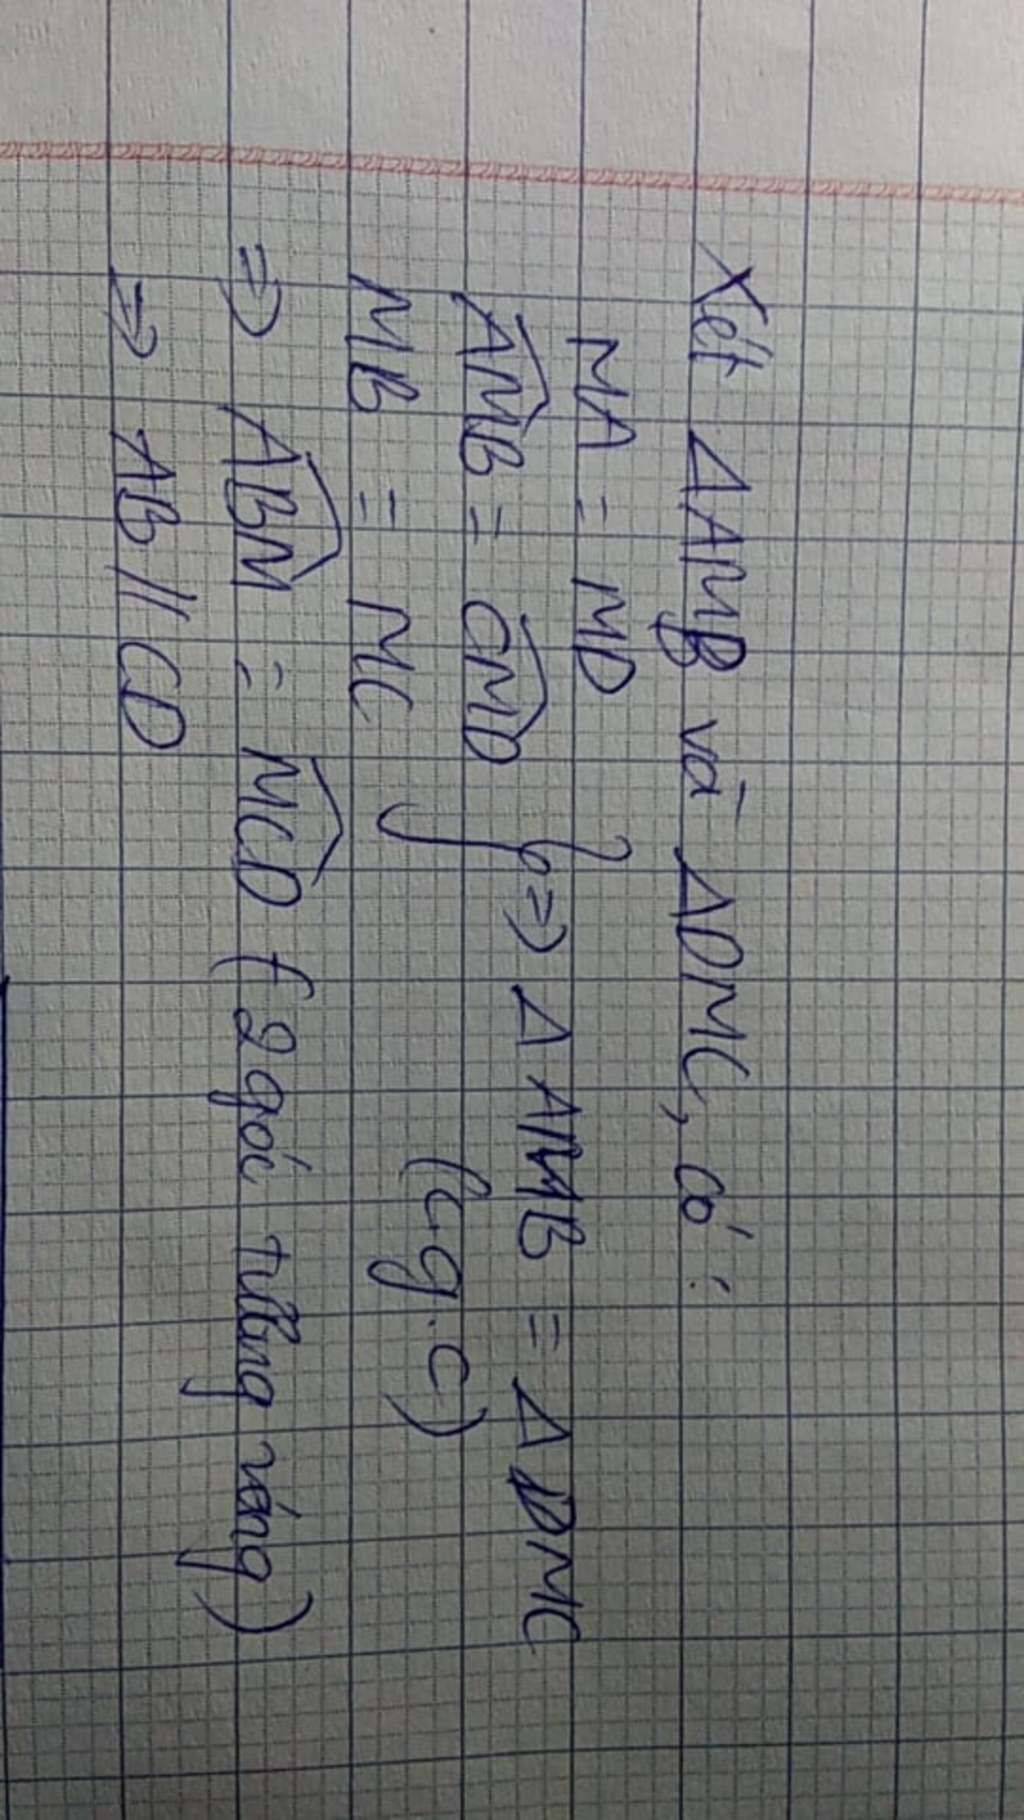 Xét ΔAMB và ΔDMC, có:
MA = MD
AMB = CMD } => ΔAMB = ΔDMC
MB = MC (c.g.c)
=> ABM = MCD (2 góc tương ứng)
=> AB // CD